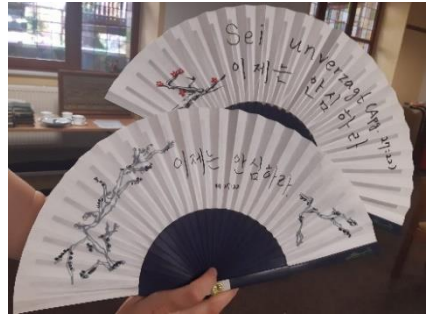 Sei unverzagt (Apg. 27:22)
이제는 안심하라
이제는 안심하라.